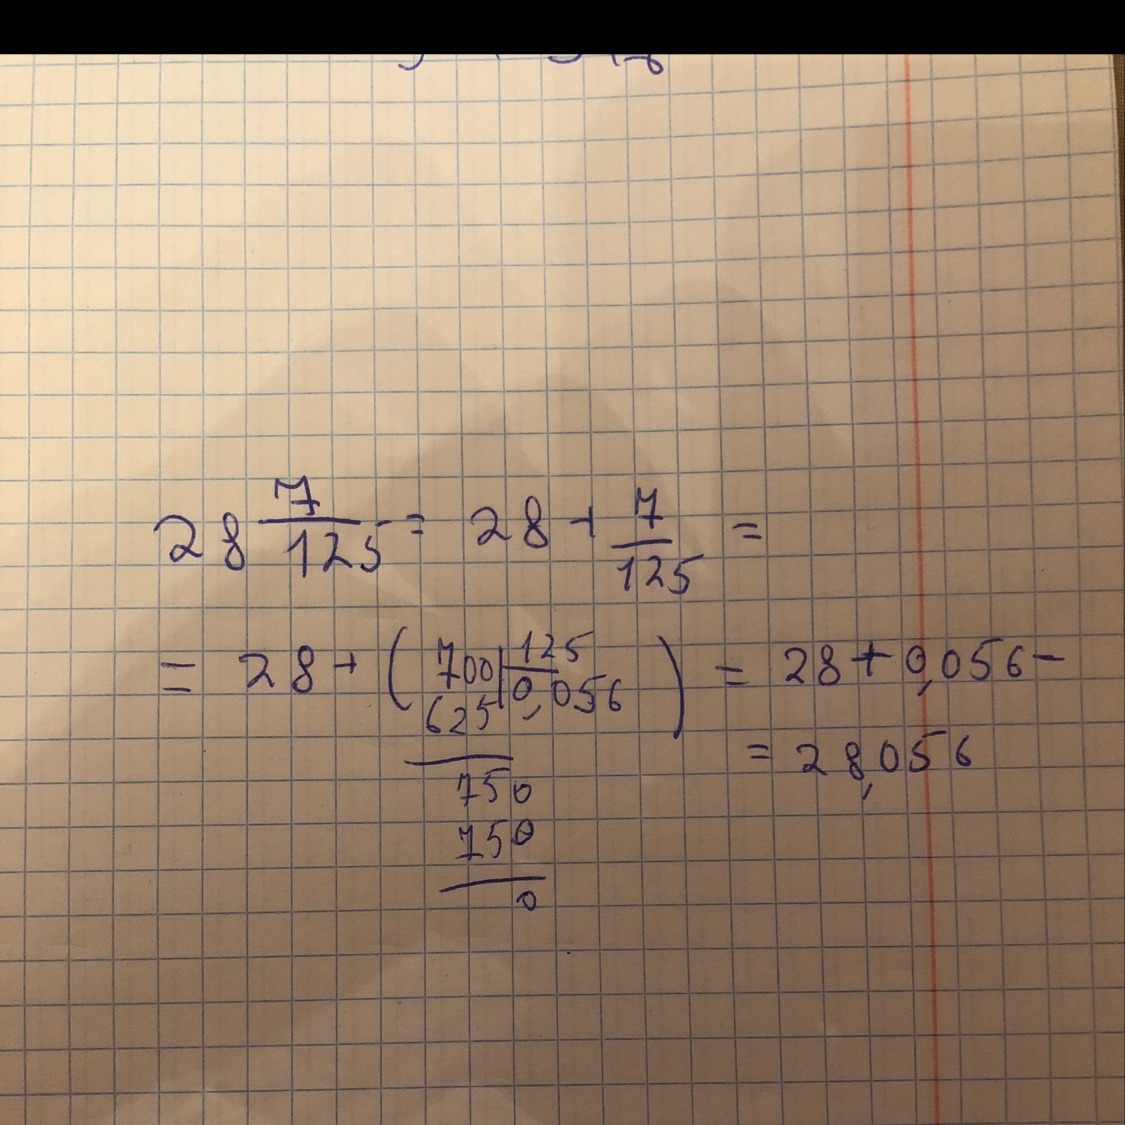 28 7/125 = 28 + 7/125 =
= 28 + ( 700 | 125
625 | 0,056 ) = 28 + 0,056 –
750
= 28,056
750
0